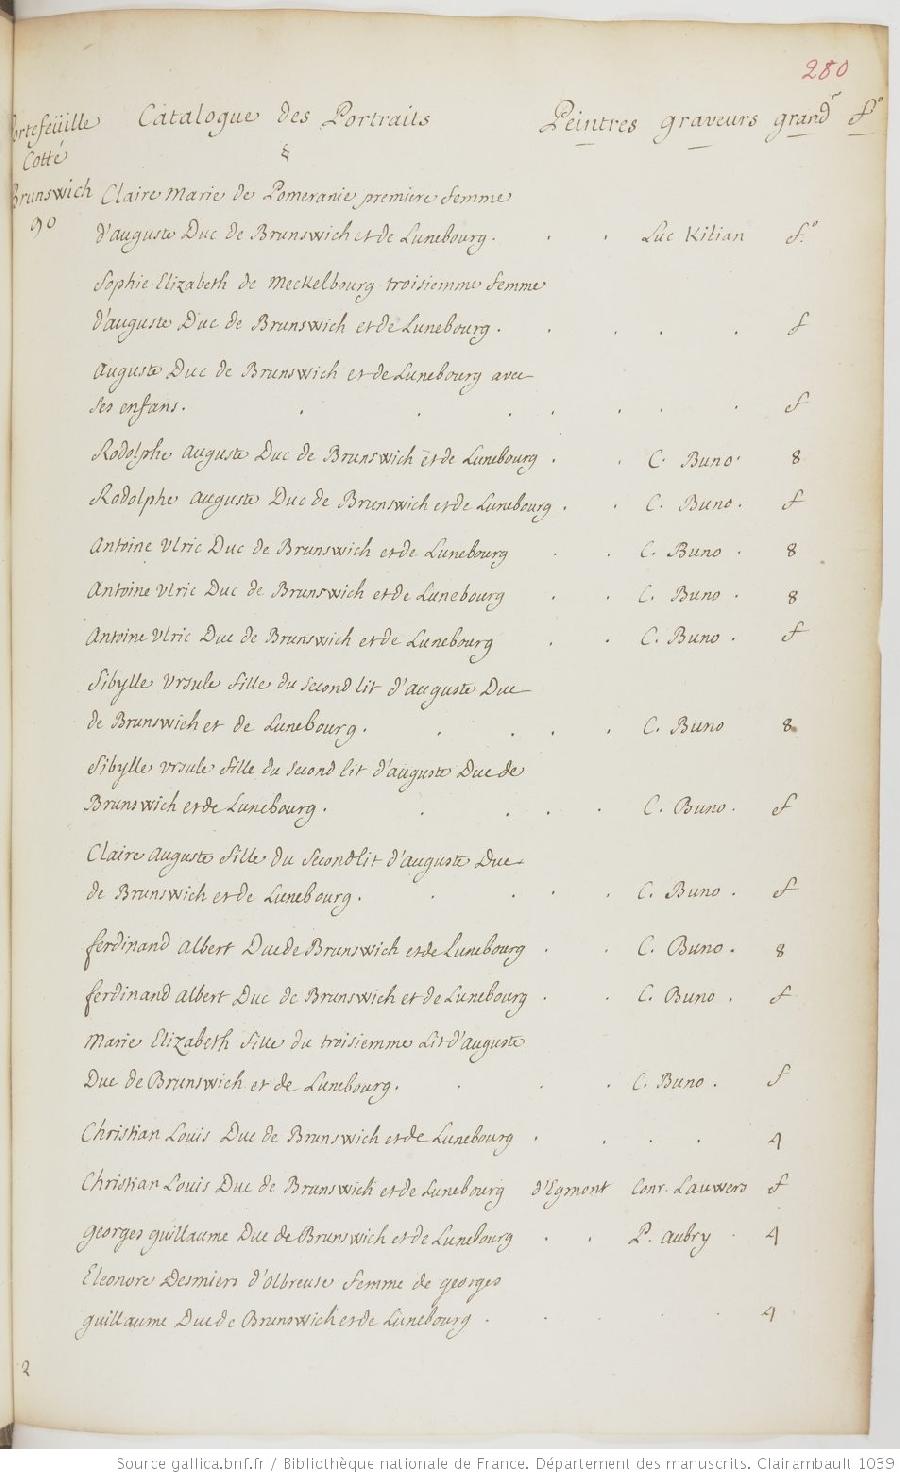 280
Portefeüille Catalogue des Portraits Peintres graveurs grandr fo
Cotté
Brunswich
90
Claire Marie de Pomeranie premiere femme
d'auguste Duc de Brunswich et de Lunebourg. . . Luc Kilian f.o
Sophie Elizabeth de Meckelbourg troisiemme femme
d'auguste Duc de Brunswich et de Lunebourg. . . . . f
Auguste Duc de Brunswich et de Lunebourg avec
ses enfans. . . . . . . . f
Rodolphe auguste Duc de Brunswich et de Lunebourg . . C. Buno. 8
Rodolphe auguste Duc de Brunswich et de Lunebourg . . C. Buno. f
Antoine Vlric Duc de Brunswich et de Lunebourg . . C. Buno . 8
Antoine Vlric Duc de Brunswich et de Lunebourg . . C. Buno . 8
Antoine Vlric Duc de Brunswich et de Lunebourg . . C. Buno . f
Sibylle Vrsule fille du second lit d'auguste Duc
de Brunswich et de Lunebourg. . . . . C. Buno 8
Sibylle vrsule fille du second lit d'auguste Duc de
Brunswich et de Lunebourg. . . . . C. Buno. f
Claire auguste fille du second lit d'auguste Duc
de Brunswich et de Lunebourg. . . . . C. Buno . f
ferdinand albert Duc de Brunswich et de Lunebourg . . C. Buno. 8
ferdinand albert Duc de Brunswich et de Lunebourg . . C. Buno . f
Marie Elizabeth fille du troisiemme Lit d'auguste
Duc de Brunswich et de Lunebourg. . . . C. Buno . f
Christian Louis Duc de Brunswich et de Lunebourg . . . . 4
Christian Louis Duc de Brunswich et de Lunebourg d'Egmont Conr. Lauwers f
georges guillaume Duc de Brunswich et de Lunebourg . . P. aubry . 4
Eleonore Desmiers d'olbreuse femme de georges
guillaume Duc de Brunswich et de Lunebourg . . . . 4
2
Source gallica.bnf.fr / Bibliothèque nationale de France. Département des manuscrits. Clairambault 1039